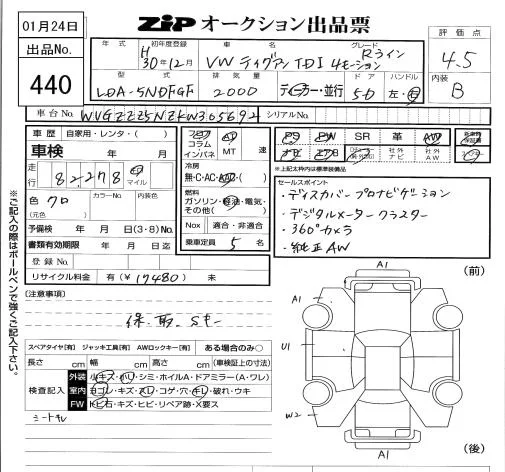 01月24日
ZiP オークション出品票
出品No.
440
年式 初年度登録 車名 グレード
H 30年12月 VW ティグアン TDI 4モーション Rライン
型式 排気量 ドア ハンドル
LDA-5NDFGF 2000 ディーラー・並行 5D 左・右
評価点
4.5
内装
B
車台No. WVGZZZ5NZKW305694 シリアルNo.
車歴 自家用・レンタ( )
車検 年 月
走行 82278 km マイル
色 クロ カラーNo. 内装色
(元色)
予備検 年 月 日(3・8)No.
書類有効期限 年 月 日迄
登録No.
リサイクル料金 有(¥17480) 未
フロア AT
コラム
インパネ MT 速
冷房
無・C・AC・AAC・( )
燃料
ガソリン・軽油・電気・
その他( )
Nox 適合・非適合
乗車定員 5 名
PS PW SR 革 AW
ナビ エアB 社外ナビ 社外AW
※上記太枠内は標準装備品
セールスポイント
・ディスカバープロナビゲーション
・デジタルメータークラスター
・360°カメラ
・純正AW
※ご記入の際はボールペンで強くご記入下さい。
[注意事項]
保.取.Sキー
スペアタイヤ[有] ジャッキ工具[有] AWロックキー[有] ある場合のみ○
長さ cm 幅 cm 高さ cm (車検証上の寸法)
検査記入
外装 小キズ・凹・シミ・ホイルA・ドアミラー(A・ワレ)
室内 ヨゴレ・キズ・スレ・コゲ・穴・キレ・破れ・ウキ
FW トビ石・キズ・ヒビ・リペア跡・X要ス
シートキレ
(前)
A1
A1
U1
W2
A1
(後)